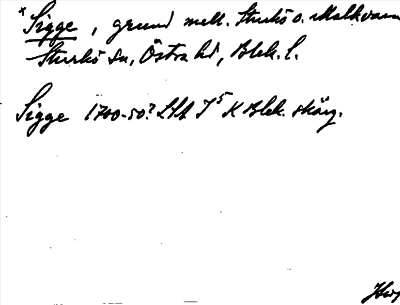 * Sigge, grund mell. Sturkö o. Malkvarn
Sturkö sn, Östra hd, Blek. l.
Sigge 1700-50? LSA J5 K Blek. skärg.